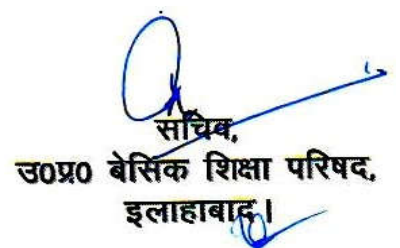 सचिव,
उ0प्र0 बेसिक शिक्षा परिषद,
इलाहाबाद।